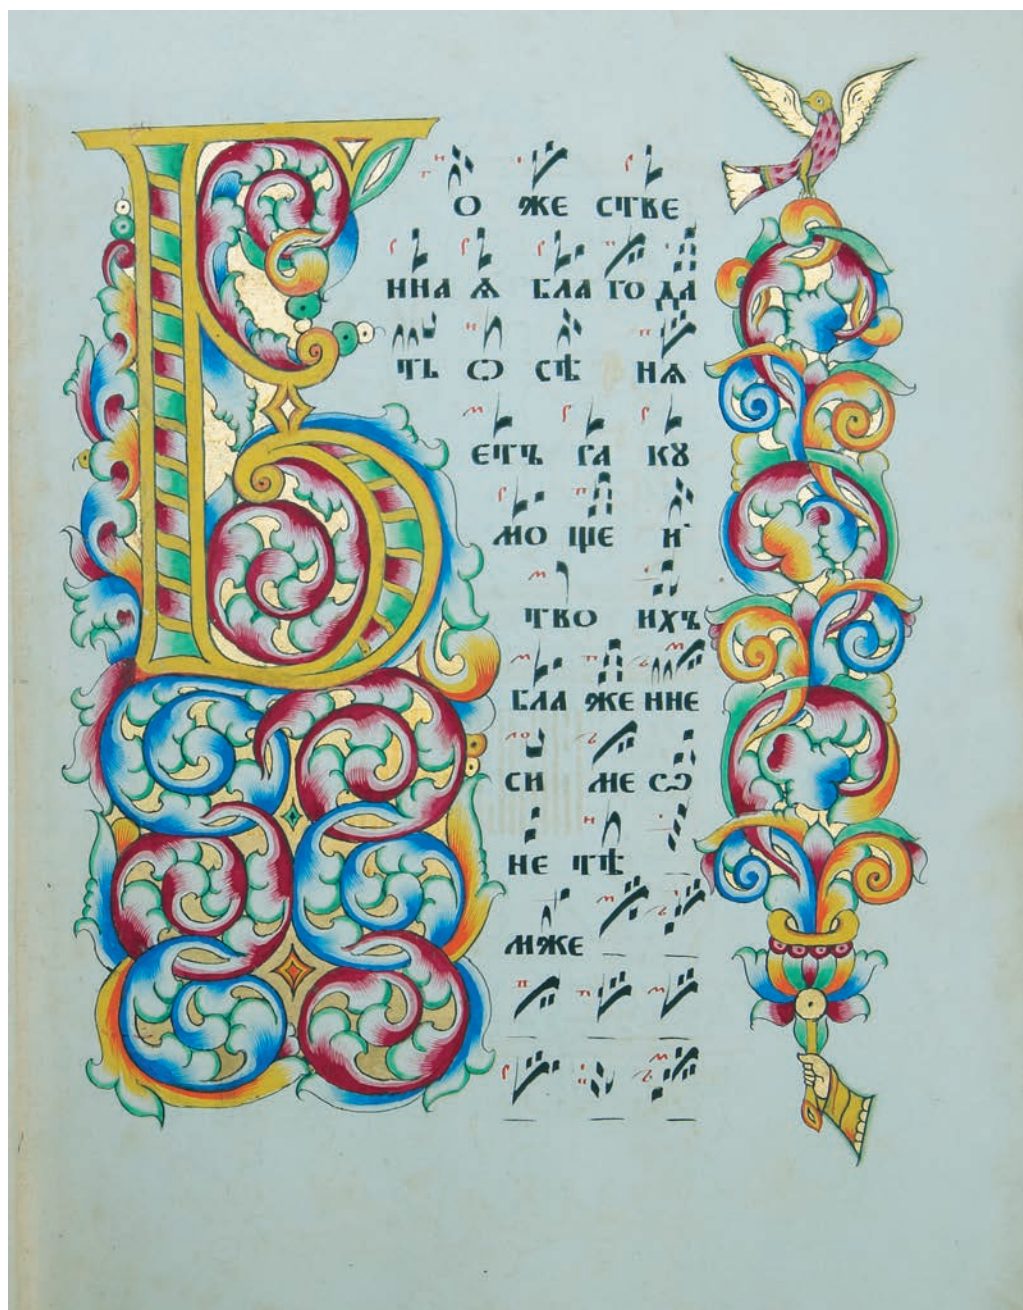 Б О ЖЕ СТВЕ
ННА Ѧ БЛА ГО ДА
ТЬ Ѻ СѢ НѦ
ЕТЪ РА КꙊ
МО ЩЕ И҆
ТВО ИХЪ
БЛА ЖЕ ННЕ
СИ МЕ Ѡ
НЕ ТѢ
МЖЕ